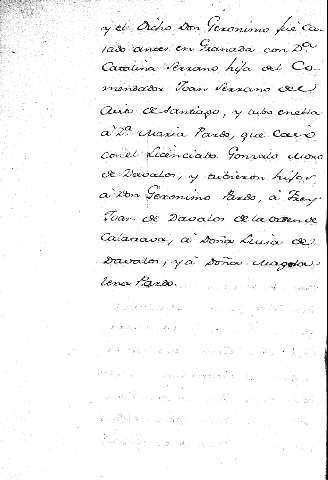 y el dicho Don Geronimo fué Ca-
sado antes en Granada con D.ª
Catalina Serrano hija del Co-
mendador Juan Serrano del
Auto de Santiago, y tubo en ella
á D.ª Maria Pardo, que casó
con el Licenciado Gonzalo Muñoz
de Davalos, y tubieron hijos
á Don Geronimo Pardo, á Frey
Juan de Davalos de la orden de
Calatrava, á Doña Luisa de
Davalos, y á Doña Magda-
lena Pardo.